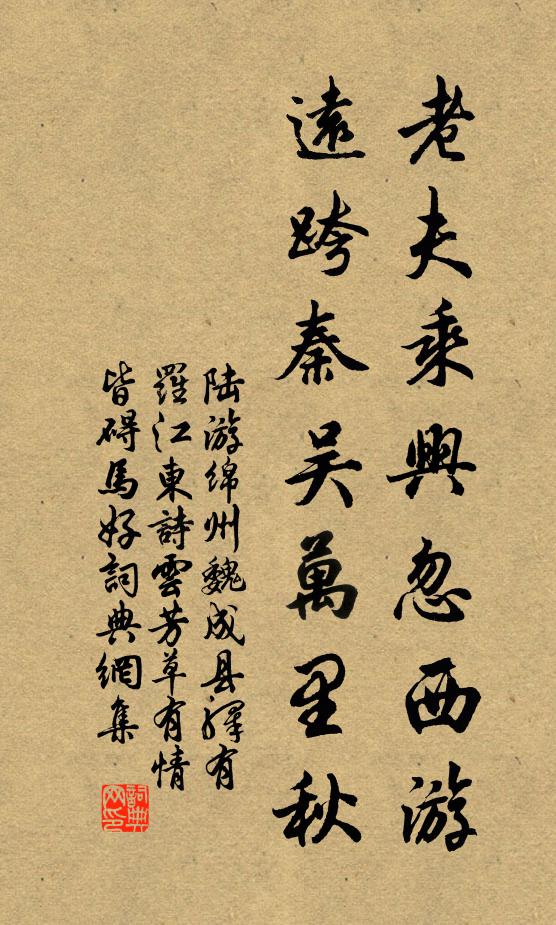 老夫乘興忽西游
遠跨秦吴萬里秋
陆游绵州魏成县驛有
羅江東詩雲芳草有情
皆碍馬好詞典網集
詞典网印